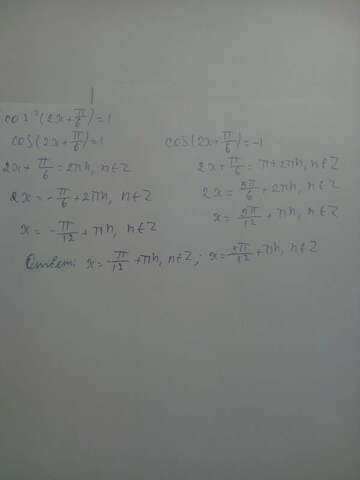 cos²(2x+π/6)=1
cos(2x+π/6)=1 cos(2x+π/6)=-1
2x+π/6=2πn, n∈Z 2x+π/6=π+2πn, n∈Z
2x=-π/6+2πn, n∈Z 2x=5π/6+2πn, n∈Z
x=-π/12+πn, n∈Z x=5π/12+πn, n∈Z
Ответ: x=-π/12+πn, n∈Z; x=5π/12+πn, n∈Z